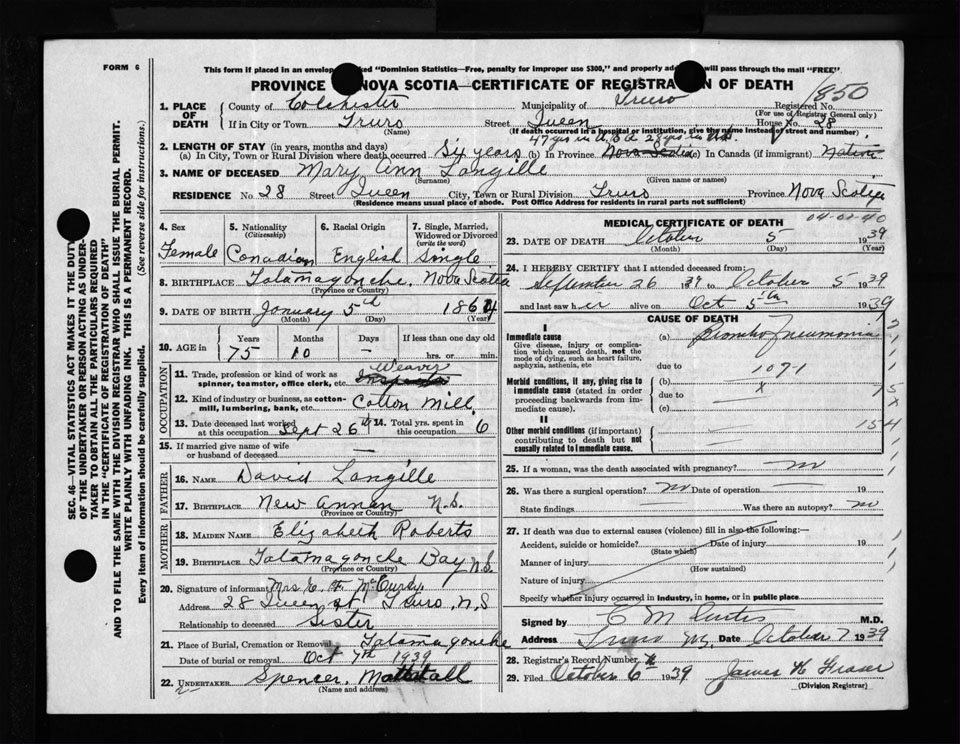 FORM 6
This form if placed in an envelope marked "Dominion Statistics—Free, penalty for improper use $300," and properly addressed will pass through the mail "FREE"
PROVINCE NOVA SCOTIA—CERTIFICATE OF REGISTRATION OF DEATH
1850
1. PLACE OF DEATH
County of Colchester Municipality of Truro Registered No.
(For use of Registrar General only)
If in City or Town Truro Street Queen House No. 28
(Name) (If death occurred in a hospital or institution, give the name instead of street and number)
2. LENGTH OF STAY (in years, months and days)
47 yrs in N.S. 28 yrs in U.S.
(a) In City, Town or Rural Division where death occurred Six years (b) In Province Nova Scotia (c) In Canada (if immigrant) Native
3. NAME OF DECEASED Mary Ann Langille
(Surname) (Given name or names)
RESIDENCE No. 28 Street Queen City, Town or Rural Division Truro Province Nova Scotia
(Residence means usual place of abode. Post Office Address for residents in rural parts not sufficient)
4. Sex Female
5. Nationality (Citizenship) Canadian
6. Racial Origin English
7. Single, Married, Widowed or Divorced (write the word) Single
8. BIRTHPLACE Tatamagouche, Nova Scotia
(Province or Country)
9. DATE OF BIRTH January 5th 1864
(Month) (Day) (Year)
10. AGE in Years Months Days If less than one day
75 10 — hrs. or min.
OCCUPATION
11. Trade, profession or kind of work as spinner, teamster, office clerk, etc. Weaver Inspector
12. Kind of industry or business, as cotton-mill, lumbering, bank, etc. Cotton Mill
13. Date deceased last worked at this occupation Sept 26th 14. Total yrs. spent in this occupation 6
15. If married give name of wife or husband of deceased —
FATHER
16. NAME David Langille
17. BIRTHPLACE New Annan N.S.
(Province or Country)
MOTHER
18. MAIDEN NAME Elizabeth Roberts
19. BIRTHPLACE Tatamagouche Bay N.S.
(Province or Country)
20. Signature of informant Mrs. C. F. McCurdy
Address 28 Queen St Truro, N.S
Relationship to deceased Sister
21. Place of Burial, Cremation or Removal Tatamagouche
Date of burial or removal Oct 7th 1939
22. UNDERTAKER Spencer, Mattatall
(Name and address)
MEDICAL CERTIFICATE OF DEATH
04-02-40
23. DATE OF DEATH October 5 1939
(Month) (Day) (Year)
24. I HEREBY CERTIFY that I attended deceased from:
September 26 1939 to October 5 1939
and last saw her alive on Oct 5th 1939
CAUSE OF DEATH
I
Immediate cause
Give disease, injury or complication which caused death, not the mode of dying, such as heart failure, asphyxia, asthenia, etc
(a) Broncho Pneumonia
due to 107-1
Morbid conditions, if any, giving rise to immediate cause (stated in order proceeding backwards from immediate cause).
(b) x
due to
(c)
II
Other morbid conditions (if important) contributing to death but not causally related to immediate cause.
154
25. If a woman, was the death associated with pregnancy? no
26. Was there a surgical operation? no Date of operation — 19
State findings — Was there an autopsy? no
27. If death was due to external causes (violence) fill in also the following:—
Accident, suicide or homicide? Date of injury 19
(State which)
Manner of injury
(How sustained)
Nature of injury
Specify whether injury occurred in industry, in home, or in public place
Signed by C M M.D.
Address Truro NS. Date October 7 1939
28. Registrar's Record Number
29. Filed October 6 1939 James H Fraser
(Division Registrar)
SEC. 46—VITAL STATISTICS ACT MAKES IT THE DUTY
OF THE UNDERTAKER OR PERSON ACTING AS UNDERTAKER TO OBTAIN ALL THE PARTICULARS REQUIRED
IN THE "CERTIFICATE OF REGISTRATION OF DEATH"
AND TO FILE THE SAME WITH THE DIVISION REGISTRAR WHO SHALL ISSUE THE BURIAL PERMIT.
WRITE PLAINLY WITH UNFADING INK. THIS IS A PERMANENT RECORD.
Every item of information should be carefully supplied. (See reverse side for instructions.)